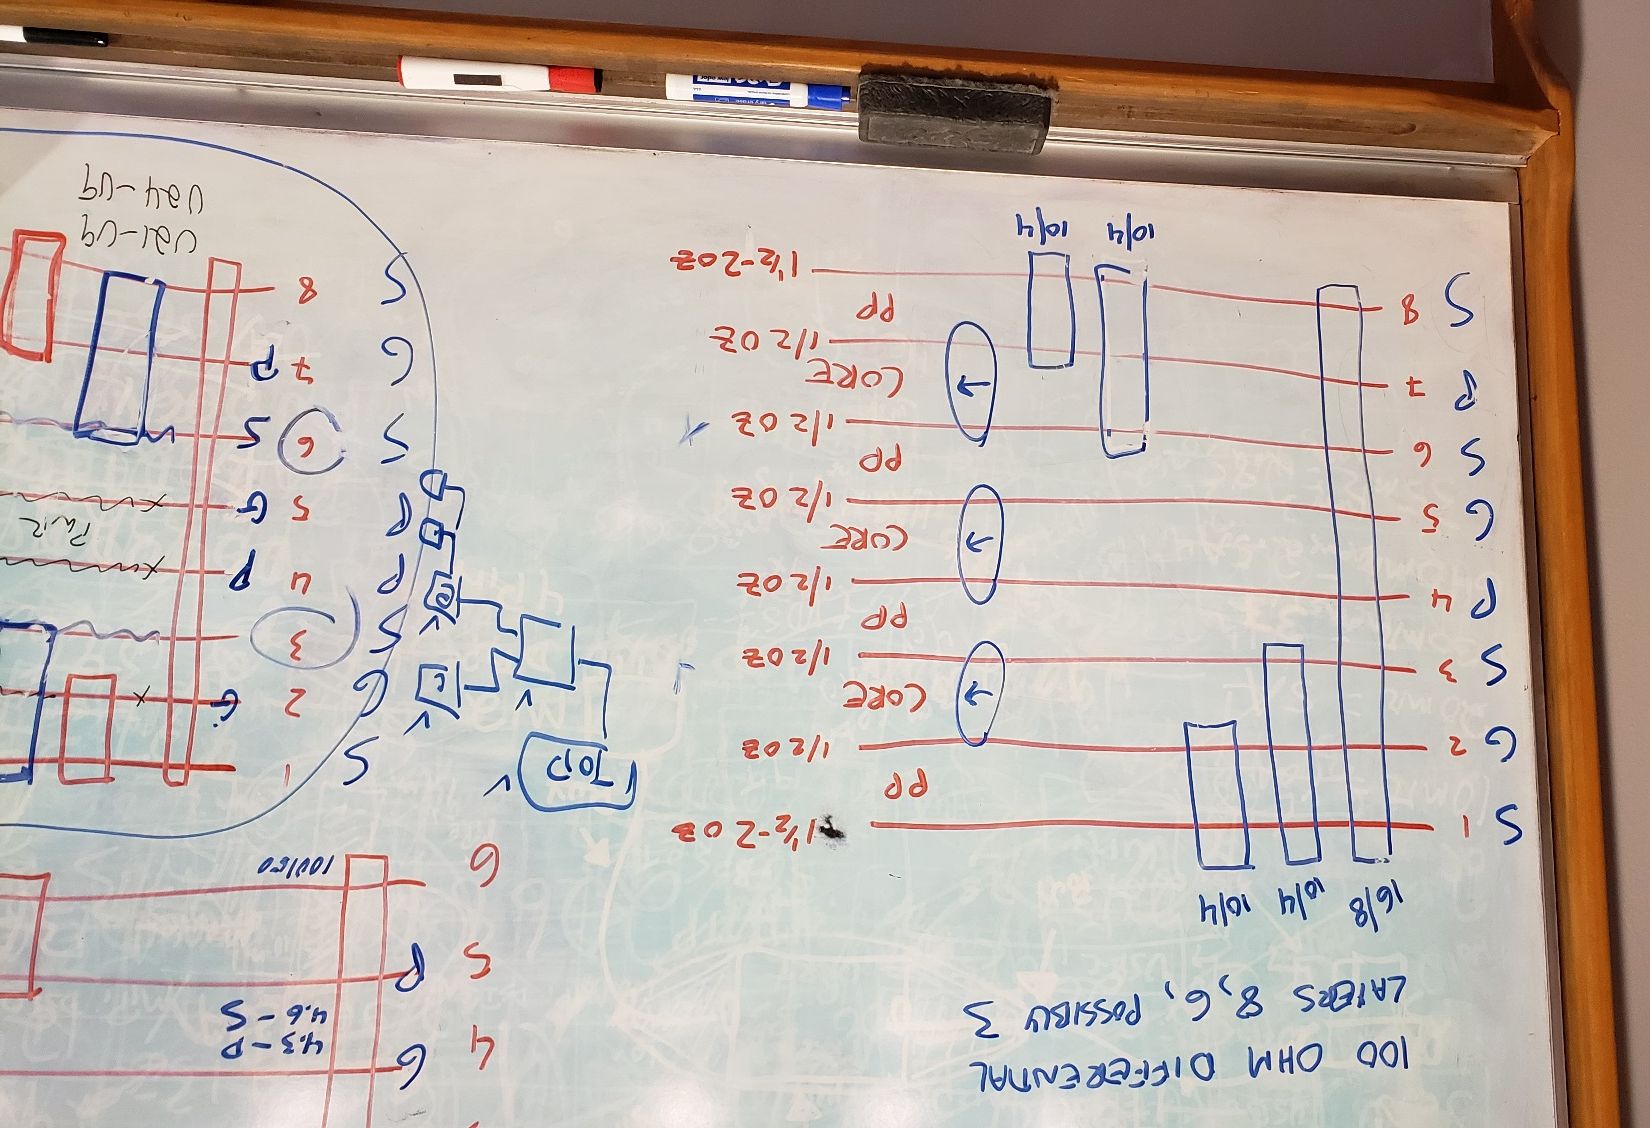 100 OHM DIFFERENTIAL
LAYERS 8, 6, POSSIBLY 3
16/8 10/4 10/4
S 1 1½-2 OZ
PP
G 2 1/2 OZ
CORE
S 3 1/2 OZ
PP
P 4 1/2 OZ
CORE
G 5 1/2 OZ
PP
S 6 1/2 OZ
CORE
P 7 1/2 OZ
PP
S 8 1½-2 OZ
10/4 10/4
4 G
4.3-P
4.6-S
5 P
6 100/50
TOP
S 1
G 2 G
S 3
P 4 P
PWR
P 5 G
S 6 S
G 7 P
S 8
U21-U9
U24-U9